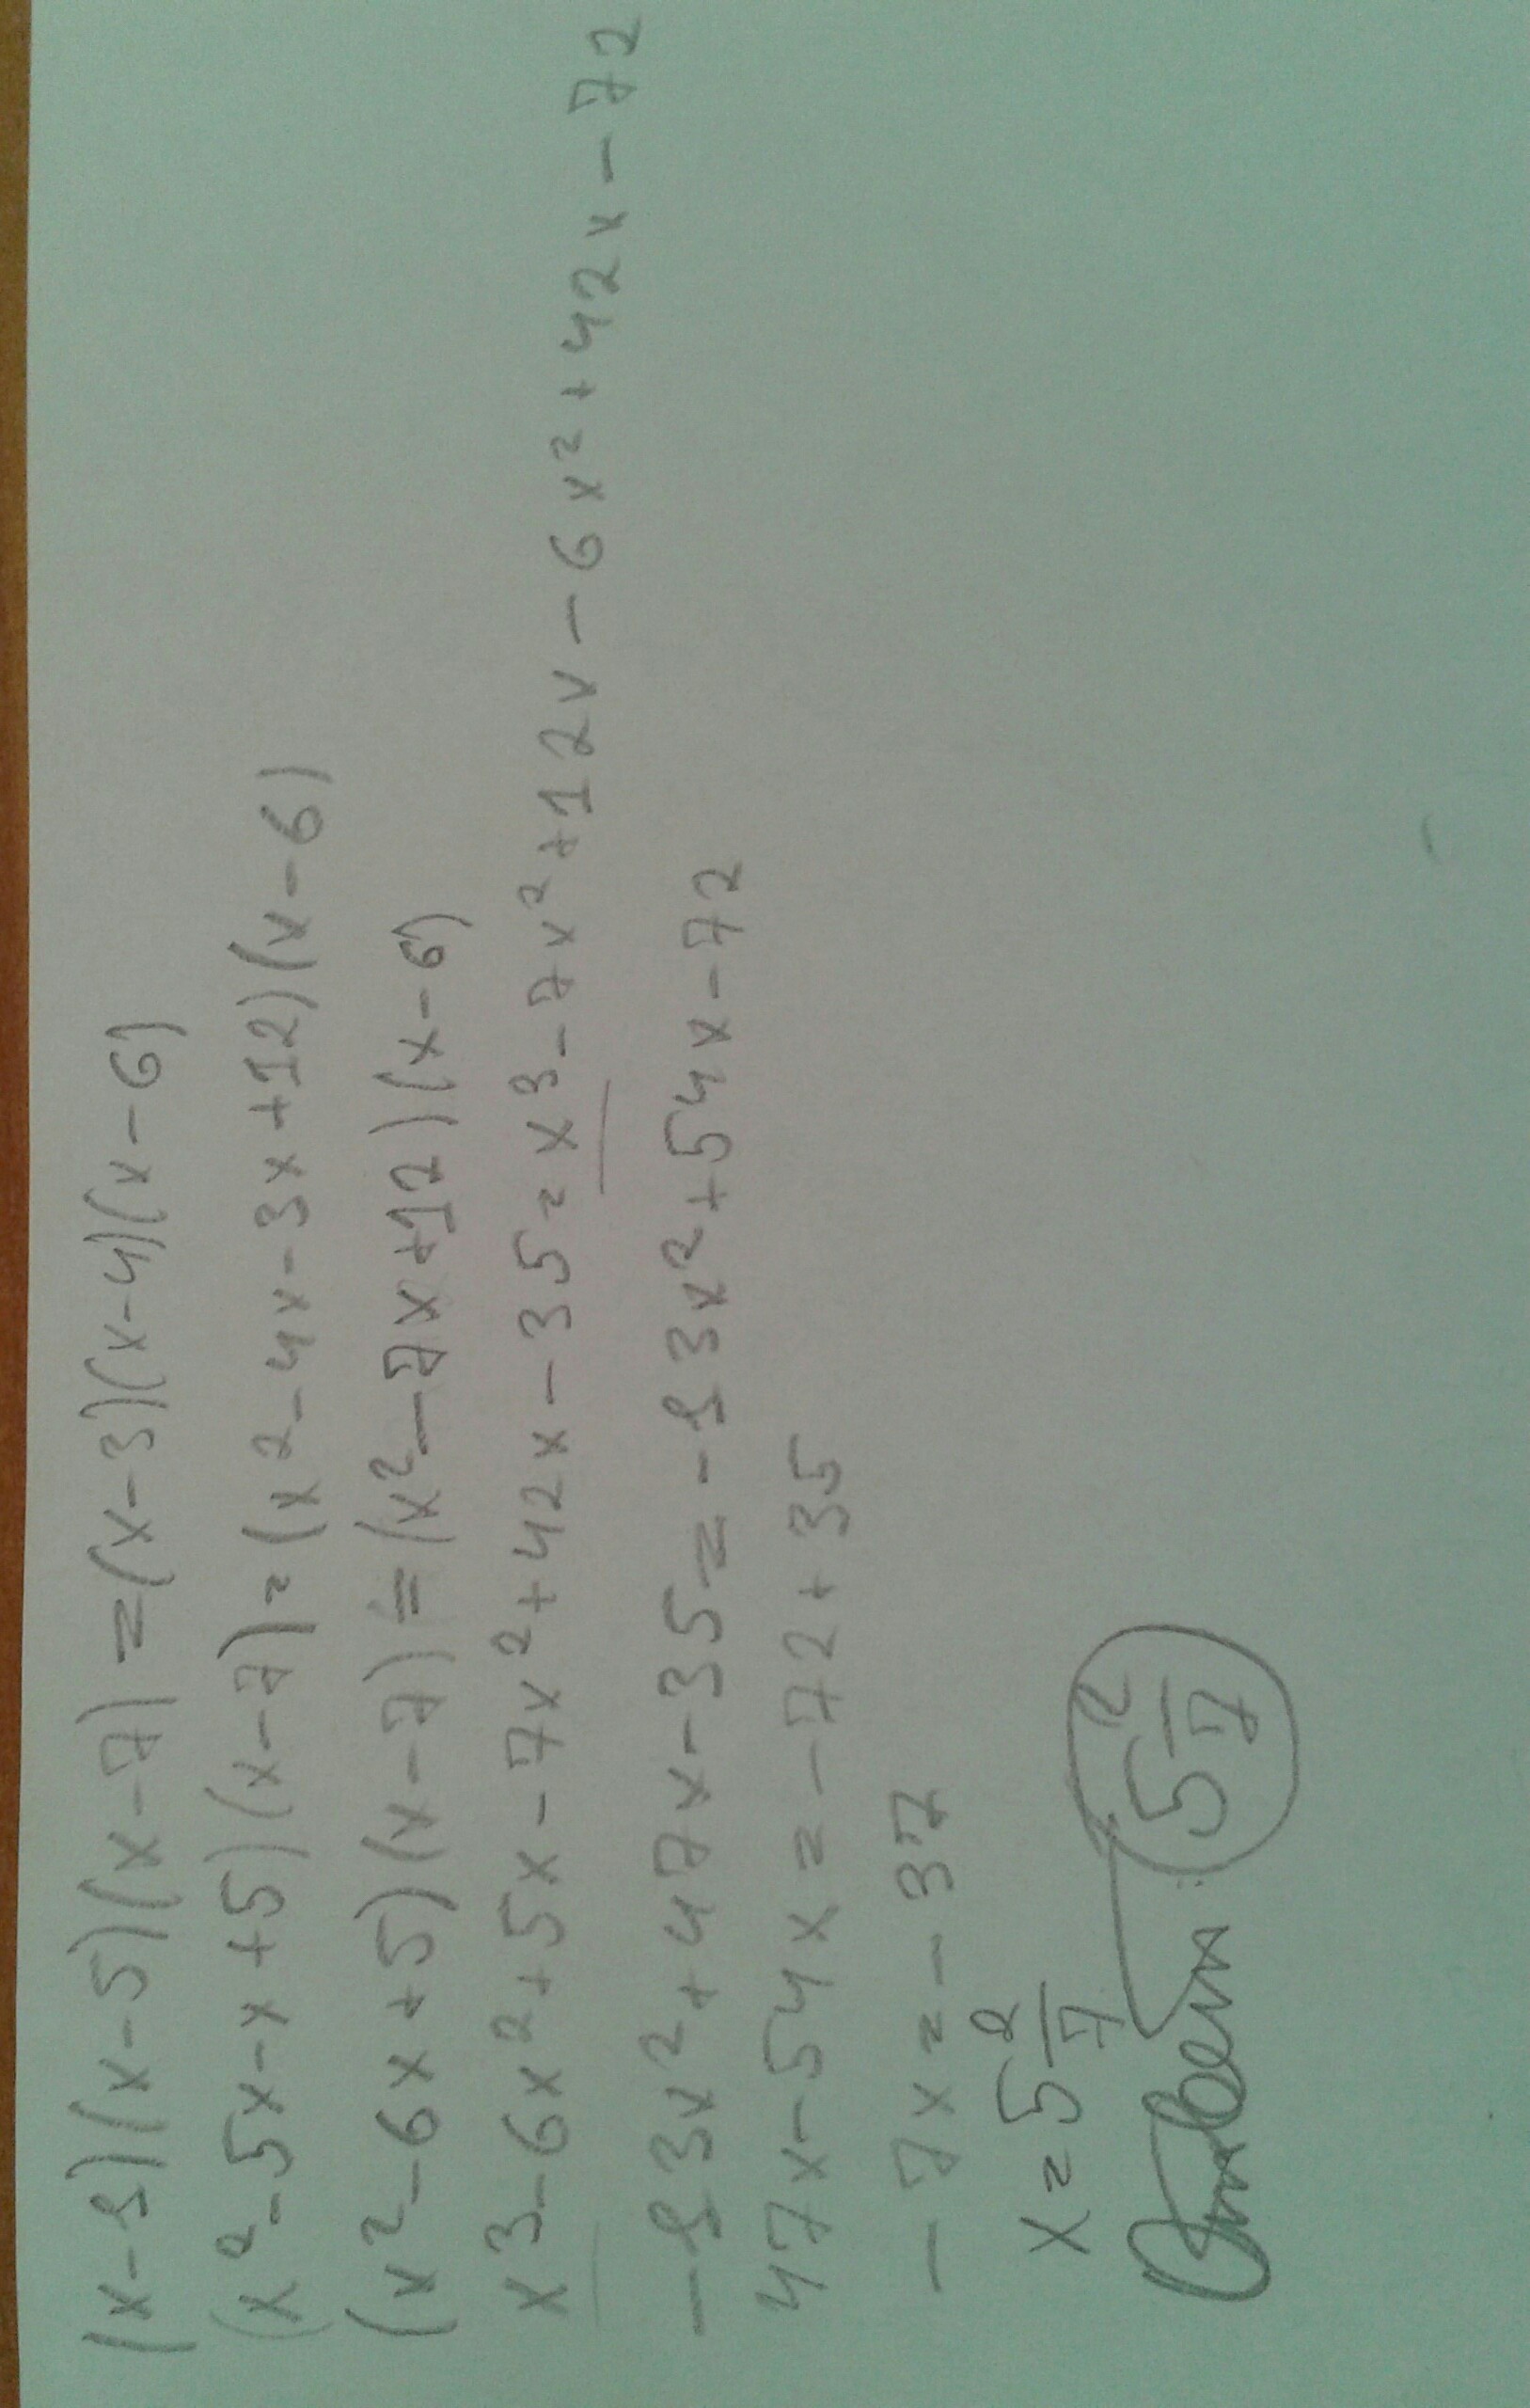 (x-1)(x-5)(x-7)=(x-3)(x-4)(x-6)
(x²-5x-x+5)(x-7)=(x²-4x-3x+12)(x-6)
(x²-6x+5)(x-7)=(x²-7x+12)(x-6)
x³-6x²+5x-7x²+42x-35=x³-7x²+12x-6x²+42x-72
-13x²+47x-35=-13x²+54x-72
47x-54x=-72+35
-7x=-37
x=5 2/7
Ответ: 5 2/7